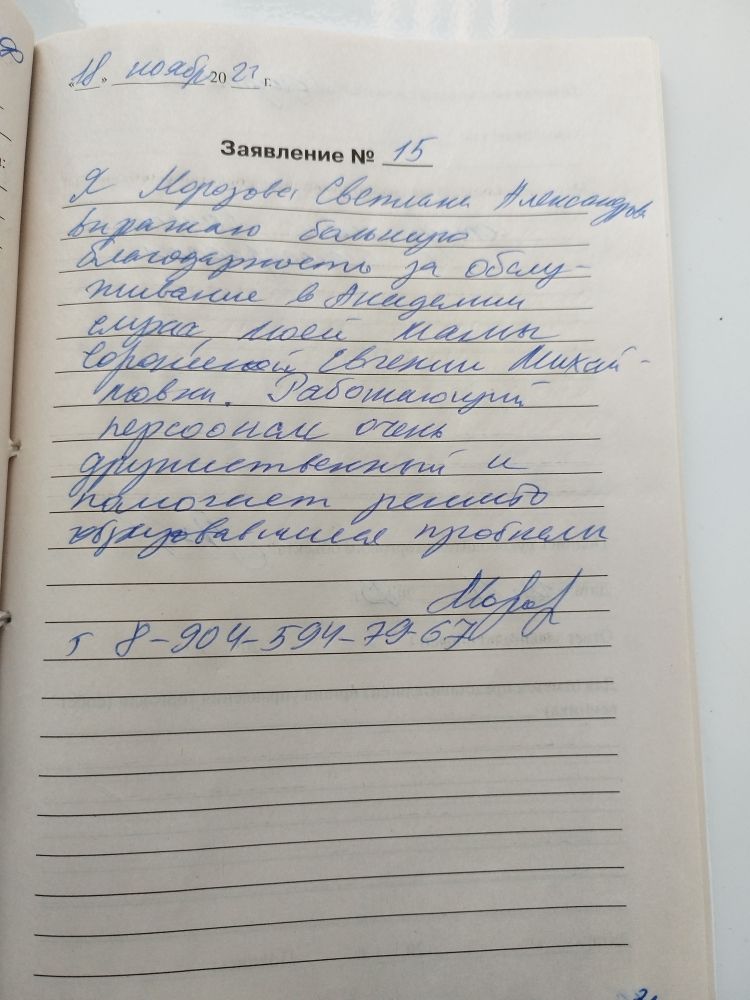 «18» ноябр 2021 г.
Заявление № 15
Я Морозова Светлана Александровна
выражаю большую
благодарность за обслу-
живание в Академии
слуха, моей мамы
Евгении Михай-
ловны. Работающий
персоонал очень
дружественный и
помогает решить
образовавшиеся проблемы
т 8-904-594-79-67